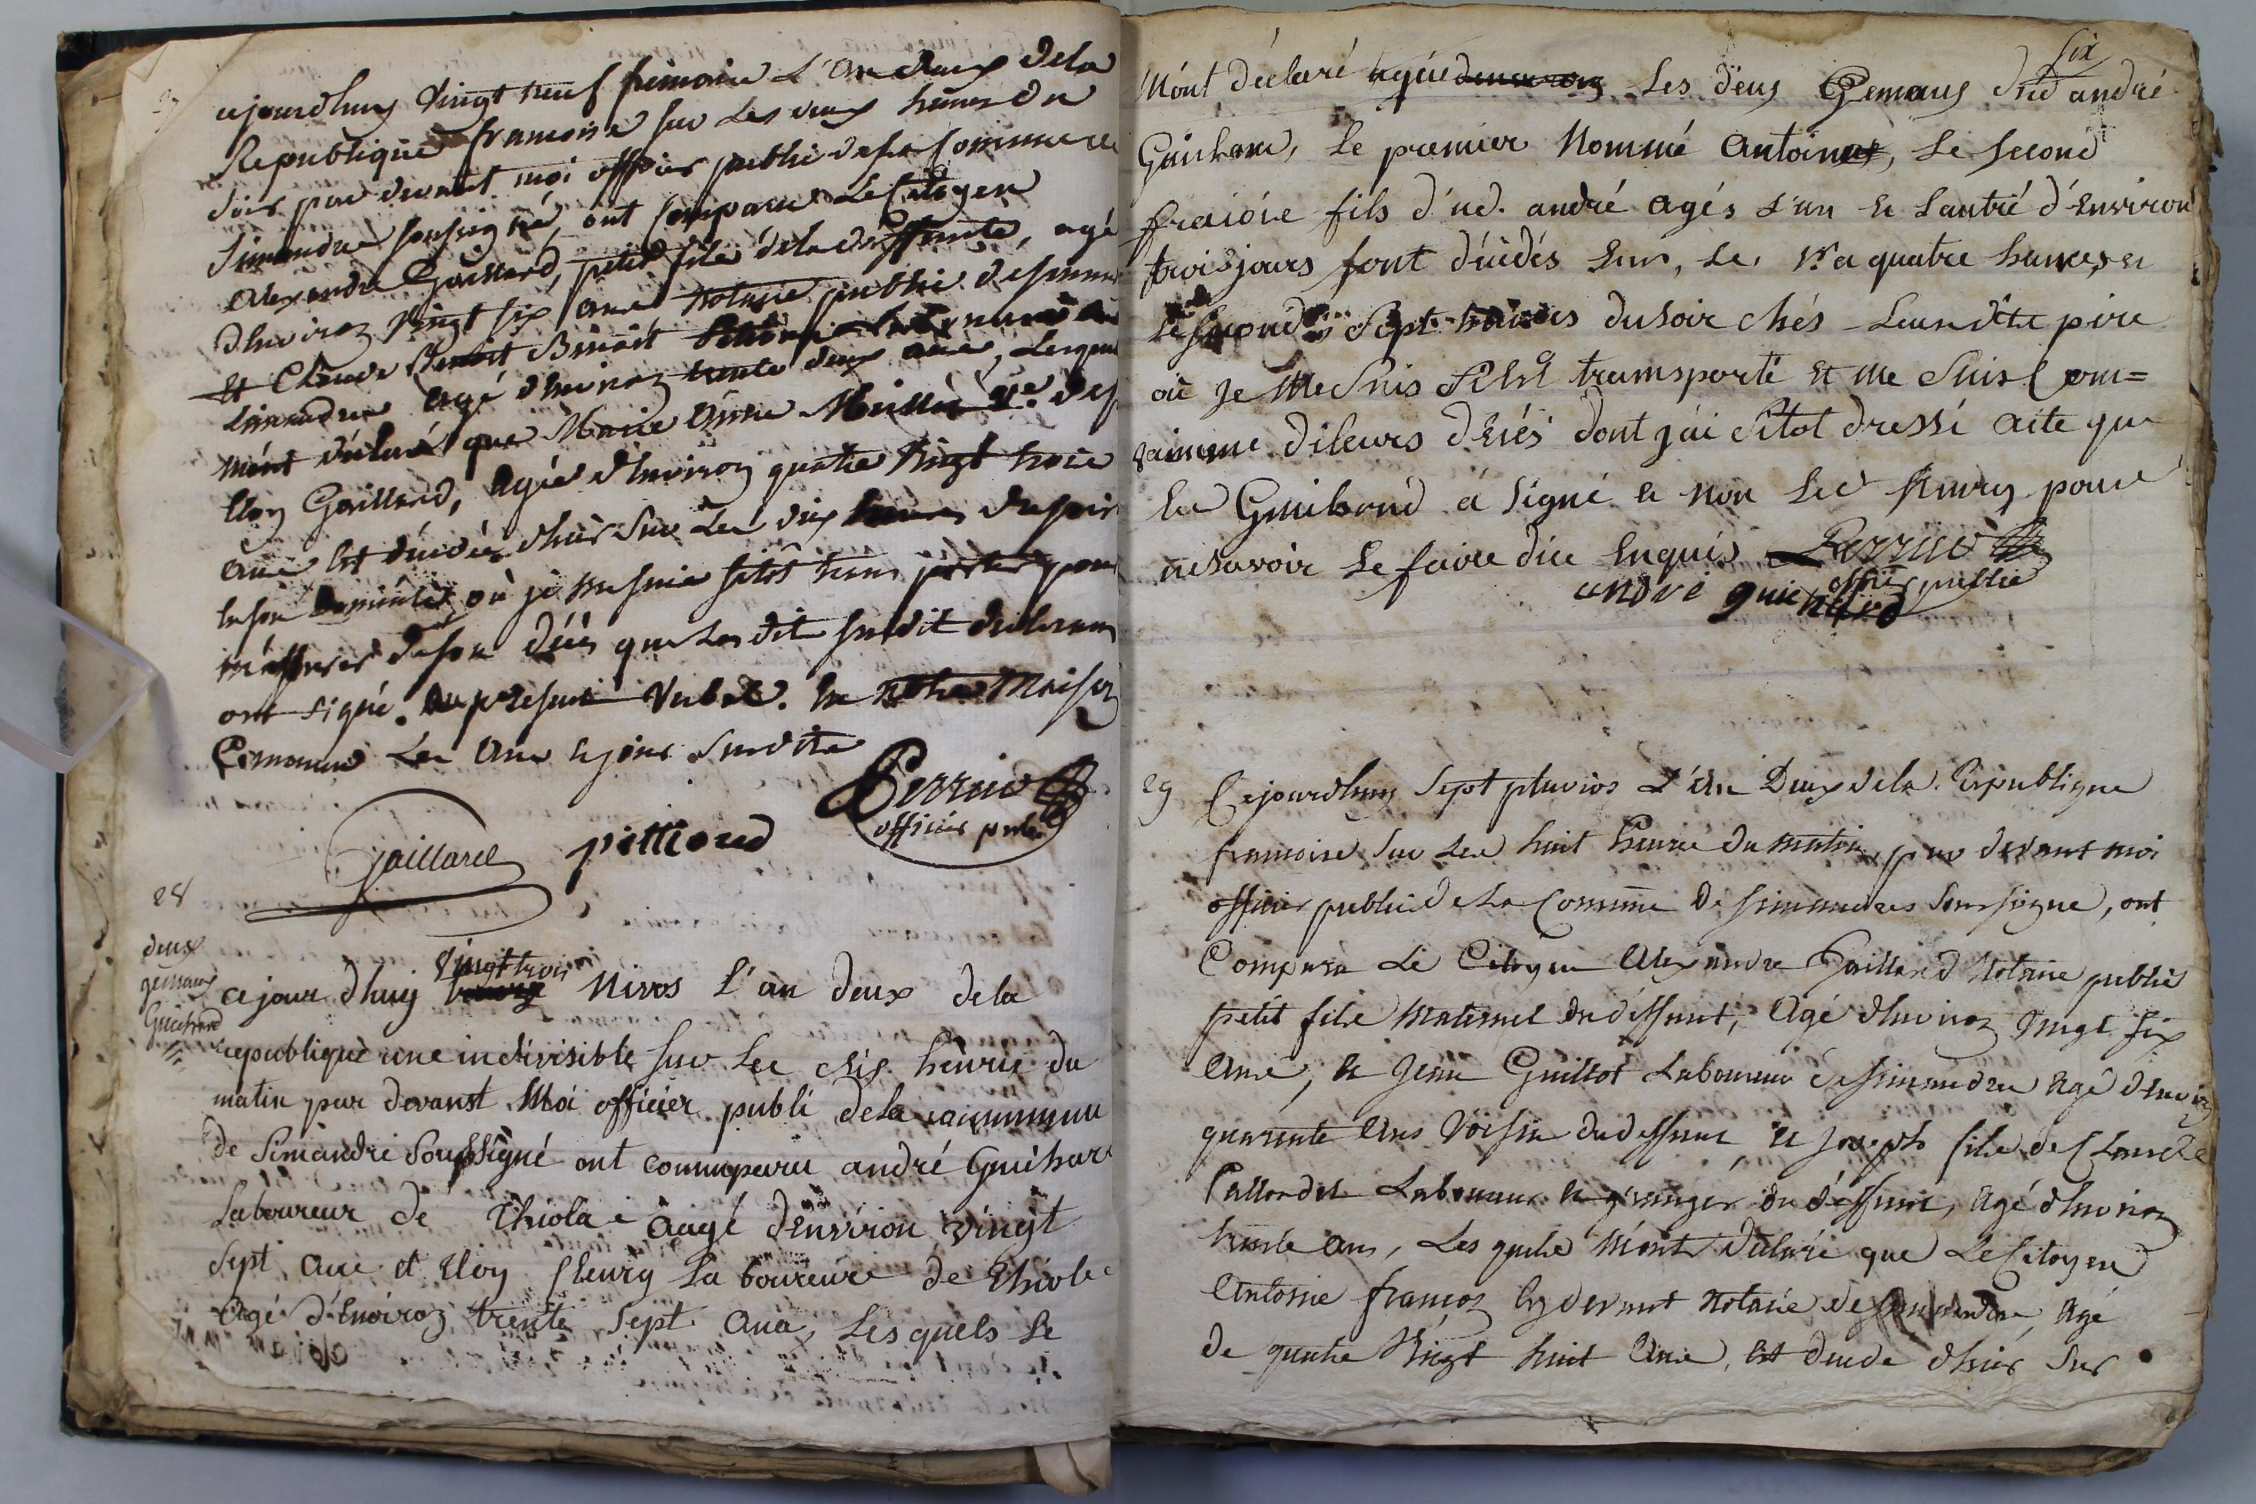 27
ajourdhuy Vingt neuf frimaire L'An deux dela
Republique francoise sur Les deux heures du
soir par devant moi officier public dela Commune de
Simandre soussigné, ont comparu Le Citoyen
alexandre Gaillard, petit fils dela deffunte, agé
dhuiron Vingt six ans notaire public de simandre
et Claude Benoit Benoit
simandre agé dhuiron trente deux ans, Lesquels
m'ont déclaré que Marie Anne Ve. de
Eloy Gaillard, agée d'huiron quatre Vingt trois
ans est décédée d'hier sur Les dix heures du soir
en son domicile, où je me suis sitôt transporté pour
m'assurer de son décès que Les dit susdit declarans
ont signé. au présent Verbal. en notre Maison
Commune Les An et jour susdits
Gaillard pittioud Perrin
officier public
28
deux
gemaux
Guichard
cejour dhuy Vingt trois nivos l'an deux dela
republique une indivisible sur Les dis heures du
matin par devant Moi officier publi dela commune
de Simandre Soussigné ont comuparu andré Guichard
Laboureur de Thiole aagé d'Environ vingt
sept ans et Eloy fleury La boureur de Thiole
agé d'Enviroz trente sept ans, Les quels Le
Six
M'ont déclaré Les deux Gemaux dud andré
Guichard, Le premier Nommé Antoine, Le Second
fraicoie fils d'ud. andré agés L'un et Lautré d'Environ
trois jours sont décédés hier, Le 1er a quatre heures et
le second a Sept heures du soir chés Leur dite père
où Je Me Suis Sitot transporté et Me Suis Com=
vainme de leurs décés dont jai Sitot dressé acte que
Led Guichard a Signé et non Led fleury pour
ne savoir Le faire de ce Enquis Perrin
officier public
andré guichard
29 Cejourdhuy Sept pluvios L'An Deux dela Republique
francoise sur Les huit heures du matin, par devant moi
officier public dela Commune De simandres soussigné, ont
Comparu Le Citoyen Alexandre Gaillard Notaire public
petit fils Maternel du déffunt, Agé dhuiron Vingt six
Ans, et Jean Guillot Laboureur de simandre agé d'huiron
quarente Ans Voisin du deffunt, et Joseph fils de Claude
Pallordet Laboureur et granger du déffunt, agé dhuiron
trente ans, Les quels m'ont déclaré que Le Citoyen
Antoine françoz cy devant Notaire de simandre, agé
de quatre Vingt huit Ans, est décédé d'hier sur